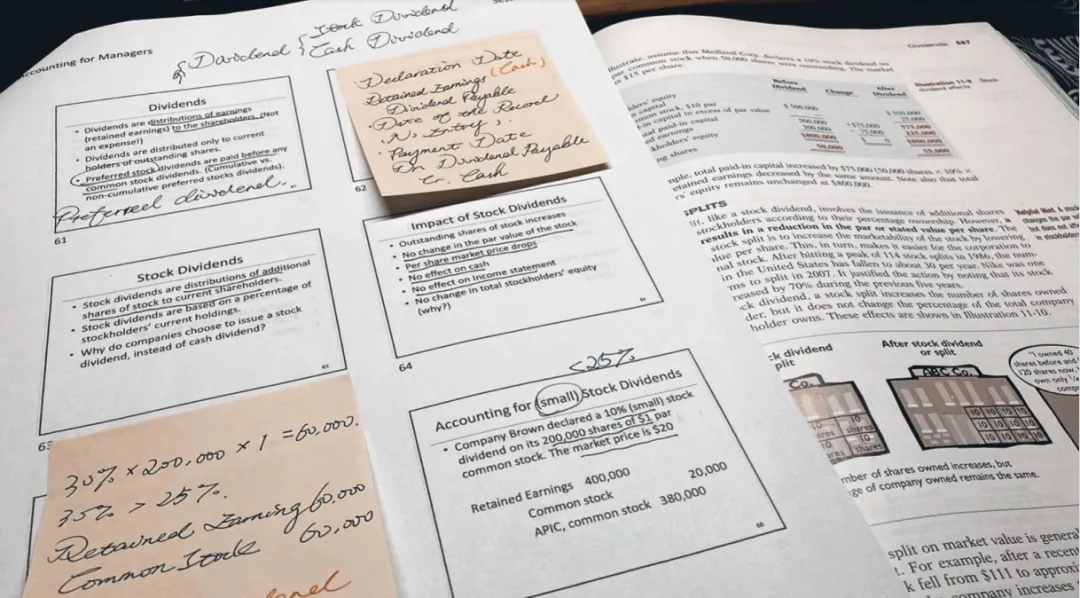 Accounting for Managers
Davidend { Stock Dividend
Cash Dividend
Dividends
• Dividends are distributions of earnings
(retained earnings) to the shareholders. (Not
an expense!)
• Dividends are distributed only to current
holders of outstanding shares.
• Preferred stock dividends are paid before any
common stock dividends. (Cumulative vs.
non-cumulative preferred stocks dividends).
Preferred dividend.
61
• Declaration Date
Retained Earnings (Cash)
Dividend Payable
• Date of the Record
No Entry.
• Payment Date
Dr. Dividend Payable
Cr. Cash
62
Stock Dividends
• Stock dividends are distributions of additional
shares of stock to current shareholders.
• Stock dividends are based on a percentage of
stockholders' current holdings.
• Why do companies choose to issue a stock
dividend, instead of cash dividend?
63
Impact of Stock Dividends
• Outstanding shares of stock increases
• No change in the par value of the stock
• Per share market price drops
• No effect on cash
• No effect on income statement
• No change in total stockholders' equity
(why?)
64
30% × 200,000 × 1 = 60,000.
35% > 25%.
Retained Earning 60,000
Common Stock 60,000
<25%
Accounting for (small) Stock Dividends
• Company Brown declared a 10% (small) stock
dividend on its 200,000 shares of $1 par
common stock. The market price is $20
Retained Earnings 400,000
Common stock 20,000
APIC, common stock 380,000
Dividends 587
illustrate, assume that Medland Corp. declares a 10% stock dividend on
par common stock when 50,000 shares were outstanding. The market
$15 per share.
Before Dividend Change After Dividend
Illustration 11-9 Stock
dividend effects
equity
capital
stock, $10 par $ 500,000 $ 550,000
capital in excess of par value 25,000
paid-in capital 500,000 +$75,000 575,000
earnings 300,000 − 75,000 225,000
equity $800,000 $ 0 $800,000
shares 50,000 55,000
total paid-in capital increased by $75,000 (50,000 shares × 10% ×
retained earnings decreased by the same amount. Note also that total
equity remains unchanged at $800,000.
SPLITS
like a stock dividend, involves the issuance of additional shares
stockholders according to their percentage ownership. However, a
results in a reduction in the par or stated value per share. The
stock split is to increase the marketability of the stock by lowering
per share. This, in turn, makes it easier for the corporation to
stock. After hitting a peak of 114 stock splits in 1986, the num-
in the United States has fallen to about 30 per year. Nike was one
to split in 2007. It justified the action by noting that its stock
reased by 70% during the previous five years.
dividend, a stock split increases the number of shares owned
but it does not change the percentage of the total company
holder owns. These effects are shown in Illustration 11-10.
Helpful Hint A stock
changes the
but does not
dividend
After stock dividend
or split
Co.
ABC Co.
10 shares
10 10 10 10
10 10 10 10
"I owned 40
shares before and
120 shares now,
own only
number of shares owned increases, but
of company owned remains the same.
split on market value is
For example, after a recent
fell from $111 to
company increases